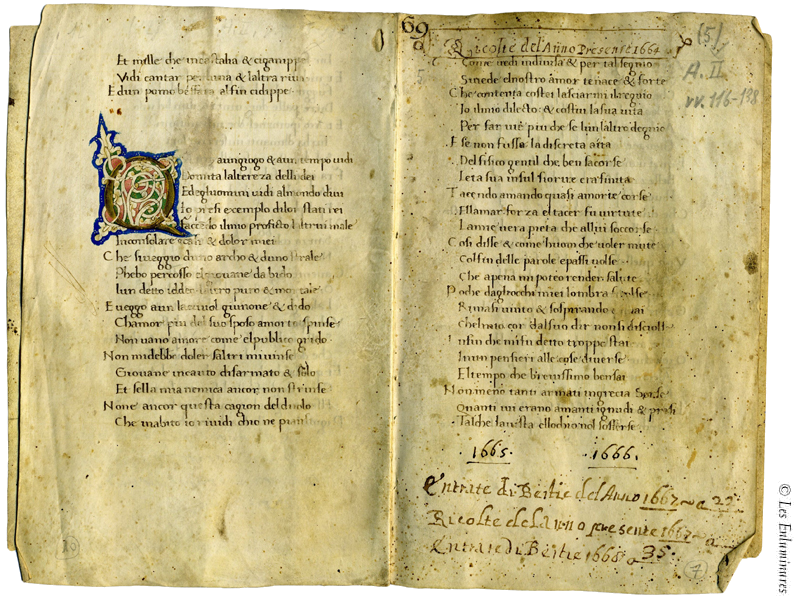 Et mille che in castalia & eganippe
Vidi cantar per luna & laltra riva
E dun pomo beffata al fin cidippe
Q
aungiogo & aun tempo uidi
Domita lalterezza delli dei
E deglhuomini uidi al mondo diui
Io presi exemplo dilor stati rei
faccendo il mio profitto laltrui male
In consolare & dolor miei
Che sio ueggio duno archo & duno strale
Phebo percosso el giouane dabido
lun detto iddeo laltro puro & mortale
E ueggo aun lacciuol giunone & dido
Chamor pio del suo sposo amorte spinse
Non uano amore come el publico grido
Non midebbe doler saltri miuinse
Giouane incauto disarmato & solo
Et sella mia nemica ancor non strinse
Non e ancor questa cagion del duolo
Che inabito io riuidi chio ne piansi
69
Ricolte del Anno Presente 1664
(5)
A. II
vv. 116-138
Come uedi indiuisa & per tal segnio
Si uede el nostro amor tenace & forte
Che contenta costei lasciarmi il regnio
Io il mio dilecto & costui la sua uita
Per far uie piu che se lun laltro degnio
E se non fusse la discreta aita
Del fisico gentil che ben sacorse
Leta sua insul fiorire era finita
Tacendo amando quasi amorte corse
El lamar forza el tacer fu uirtute
La mie uera pieta che allui soccorse
Cosi disse & come huom che uoler mute
Col fin delle parole epassi uolse
Che apena mi poteo render salute
Poche dagliocchi miei lombra si tolse
Rimasi uinto & sospirando
Chel mio cor dal suo dir non si disciolse
Infin che mi fu detto troppo stai
In un pensieri alle cose diuerse
El tempo che breuissimo ben sai
Non meno tanti armati in grecia Xerse
Quanti iui erano amanti ignudi & presi
Tal che la uista ellochio nol sofferse
1665. 1666.
Entrate di Bestie del Anno 1667 ~ a 22
Ricolte de la nno presente 1667 ~ a
Entrate di Bestie 1668 a 35.
(4)
© Les Enluminures